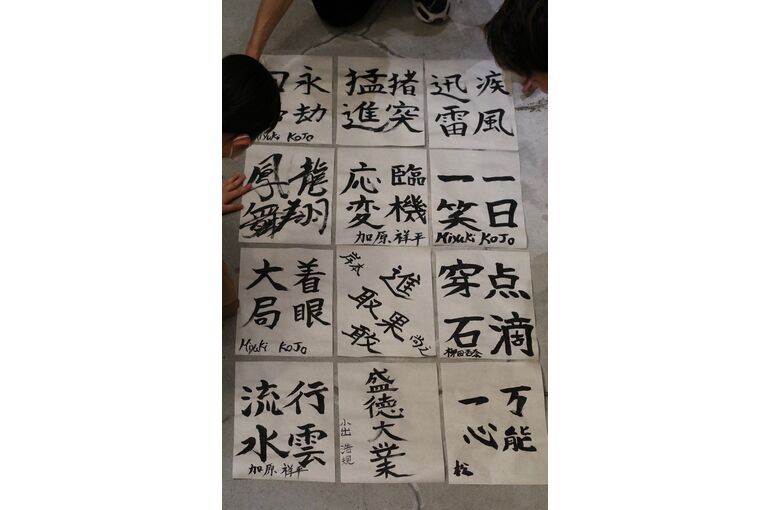 永劫
KoJo
猪突
猛進
疾風
迅雷
龍翔
鳳舞
臨機
応変
加原 祥平
一日
一笑
Miyuki KoJo
着眼
大局
Miyuki KoJo
進取
果敢
岸本
点滴
穿石
行雲
流水
加原 祥平
盛徳大業
小出 浩規
万能
一心
松